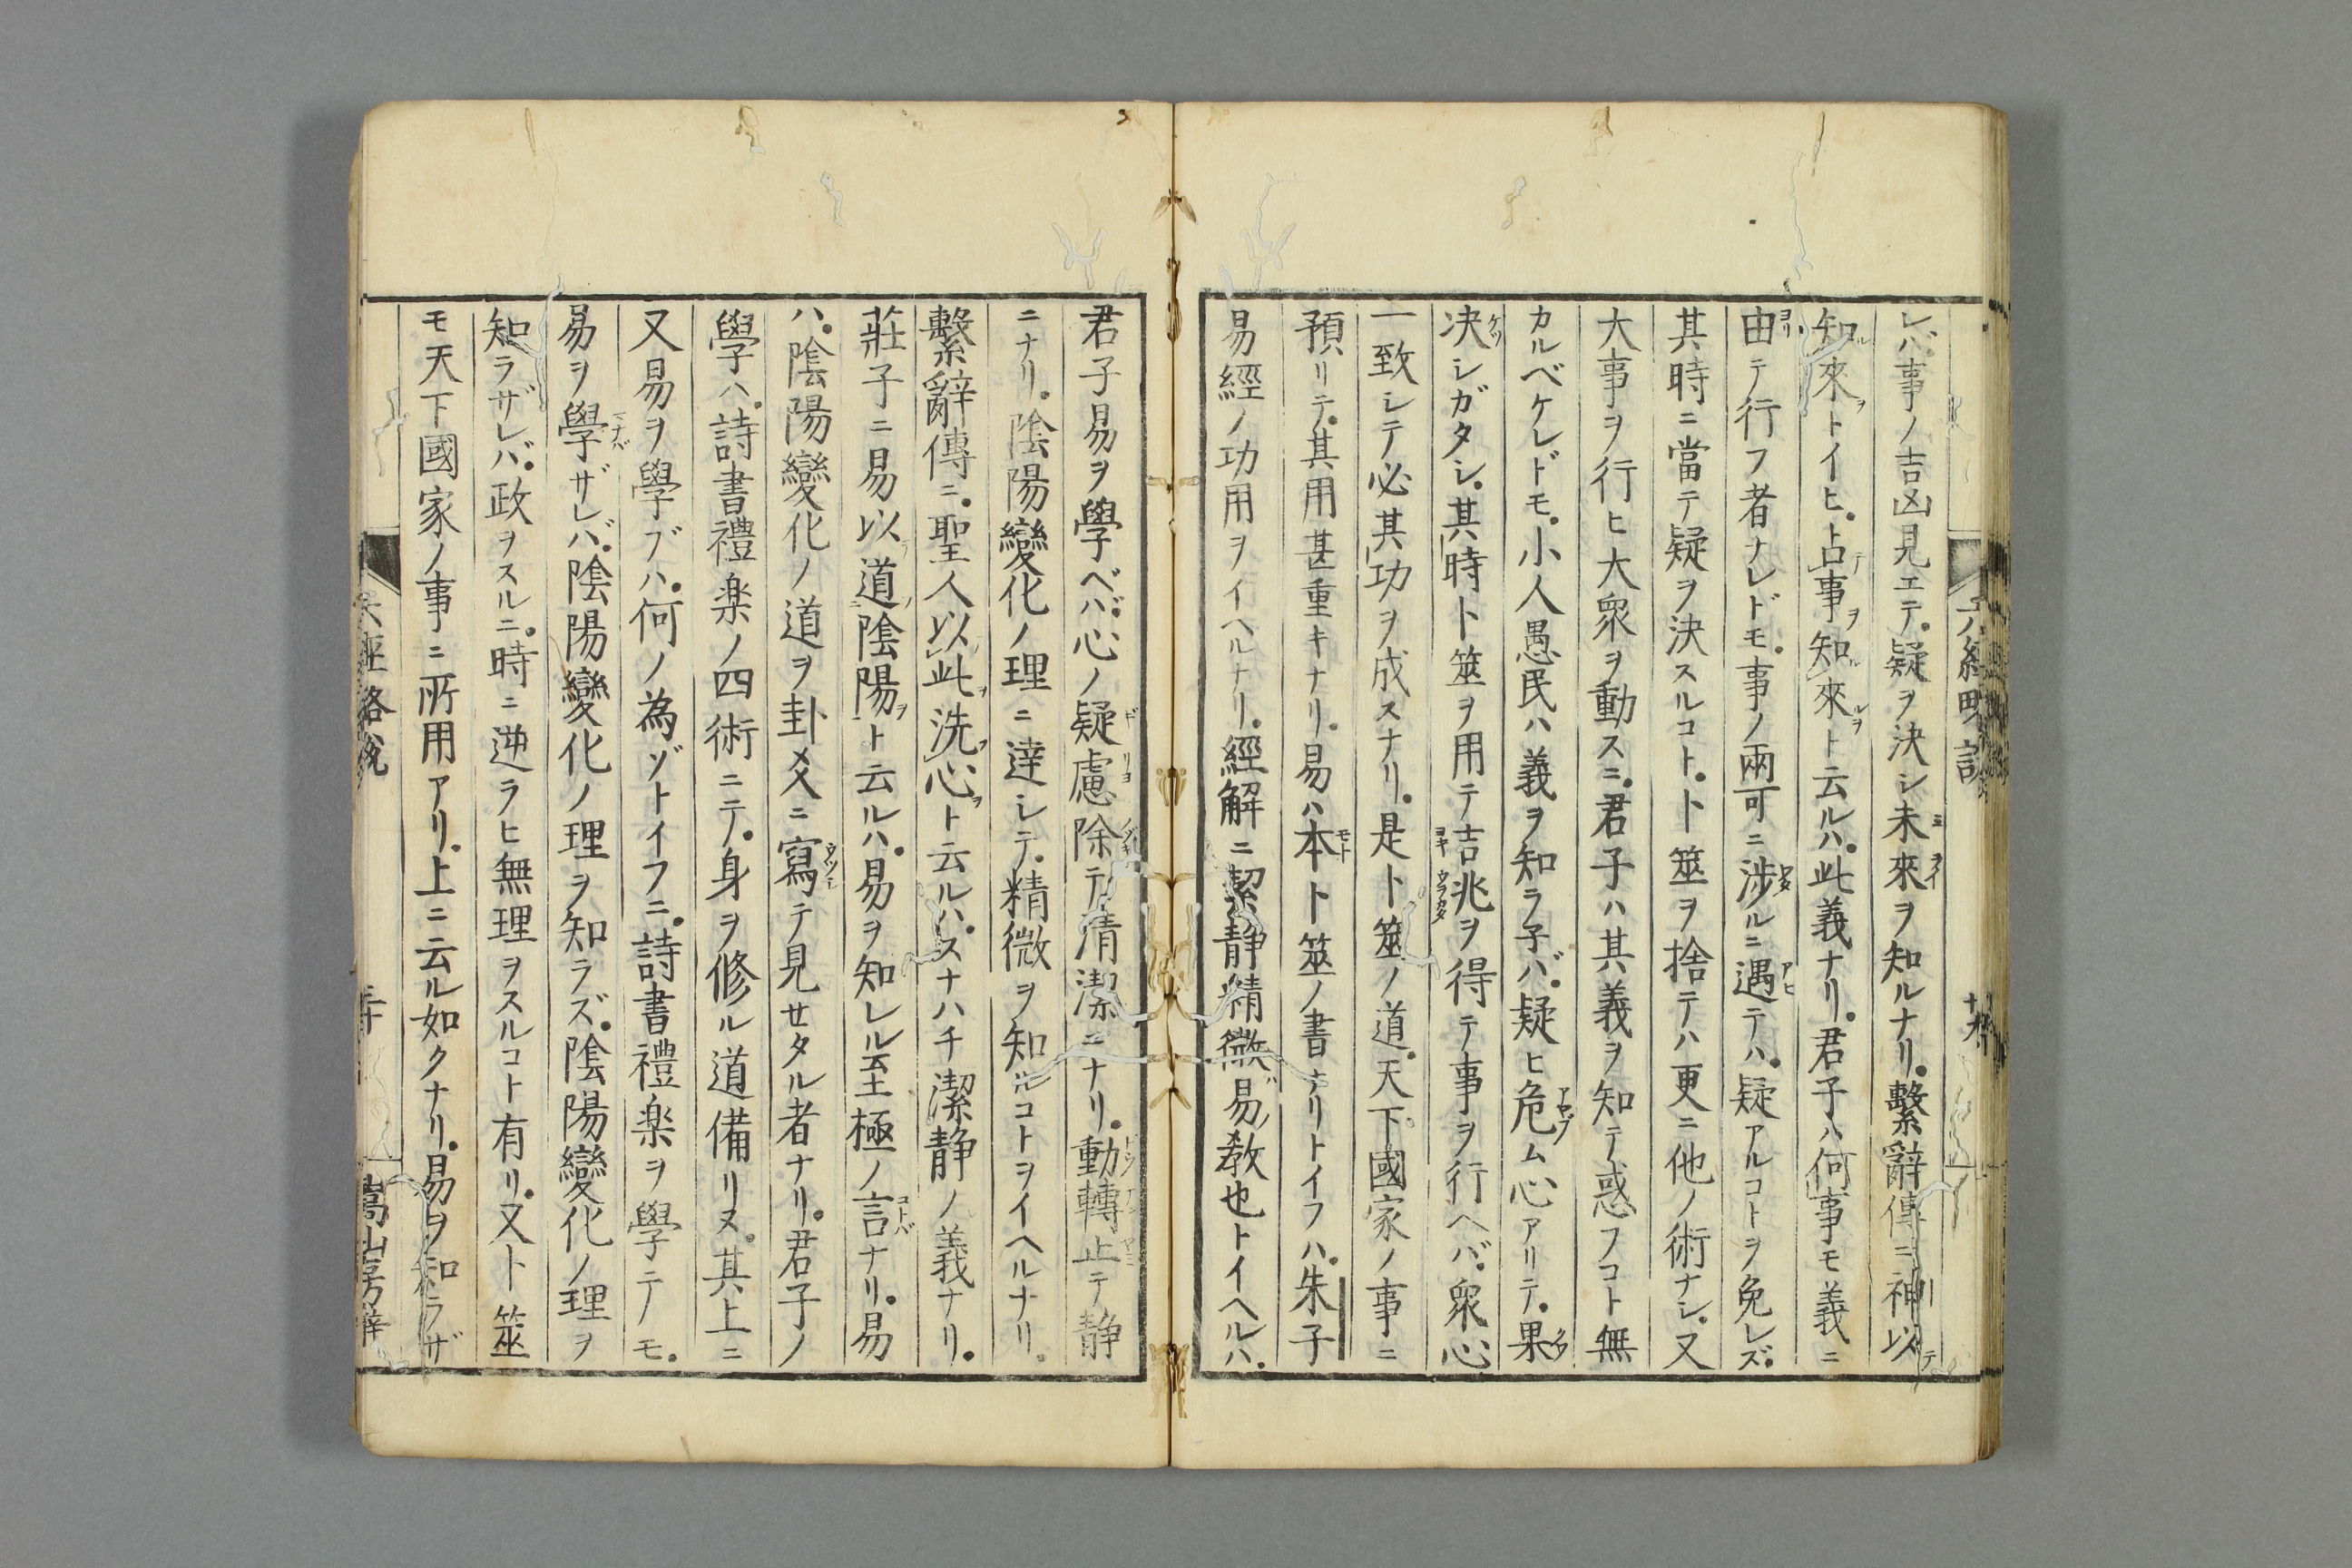 レバ事ノ吉凶見エテ疑ヲ決シ未來ヲ知ルナリ繫辭傳ニ神以
知來トイヒ占事知來ト云ルハ此義ナリ君子ハ何事モ義ニ
由テ行フ者ナレドモ事ノ兩可ニ涉ルニ遇テハ疑アルコトヲ免レズ
其時ニ當テ疑ヲ決スルコト卜筮ヲ捨テハ更ニ他ノ術ナシ又
大事ヲ行ヒ大衆ヲ動スニ君子ハ其義ヲ知テ惑フコト無
カルベケレドモ小人愚民ハ義ヲ知ラ子バ疑ヒ危ム心アリテ果
决シガタシ其時卜筮ヲ用テ吉兆ヲ得テ事ヲ行ヘバ衆心
一致シテ必其功ヲ成スナリ是卜筮ノ道天下國家ノ事ニ
預リテ其用甚重キナリ易ハ本卜筮ノ書ナリトイフハ朱子
易經ノ功用ヲイヘルナリ經解ニ潔靜精微易敎也トイヘルハ
君子易ヲ學ベバ心ノ疑慮除テ清潔ニナリ動轉止テ静
ニナリ陰陽變化ノ理ニ達シテ精微ヲ知ルコトヲイヘルナリ
繫辭傳ニ聖人以此洗心ト云ルハスナハチ潔静ノ義ナリ
莊子ニ易以道陰陽ト云ルハ易ヲ知レル至極ノ言ナリ易
ハ陰陽變化ノ道ヲ卦爻ニ寫テ見セタル者ナリ君子ノ
學ハ詩書禮楽ノ四術ニテ身ヲ修ル道備リヌ其上ニ
又易ヲ學ブハ何ノ為ゾトイフニ詩書禮楽ヲ學テノモ
易ヲ學ザレバ陰陽變化ノ理ヲ知ラズ陰陽變化ノ理ヲ
知ラザレバ政ヲスルニ時ニ逆ラヒ無理ヲスルコト有リ又卜筮
モ天下國家ノ事ニ所用アリ上ニ云ル如クナリ易ヲ知ラザ
六經略說
嵩山房